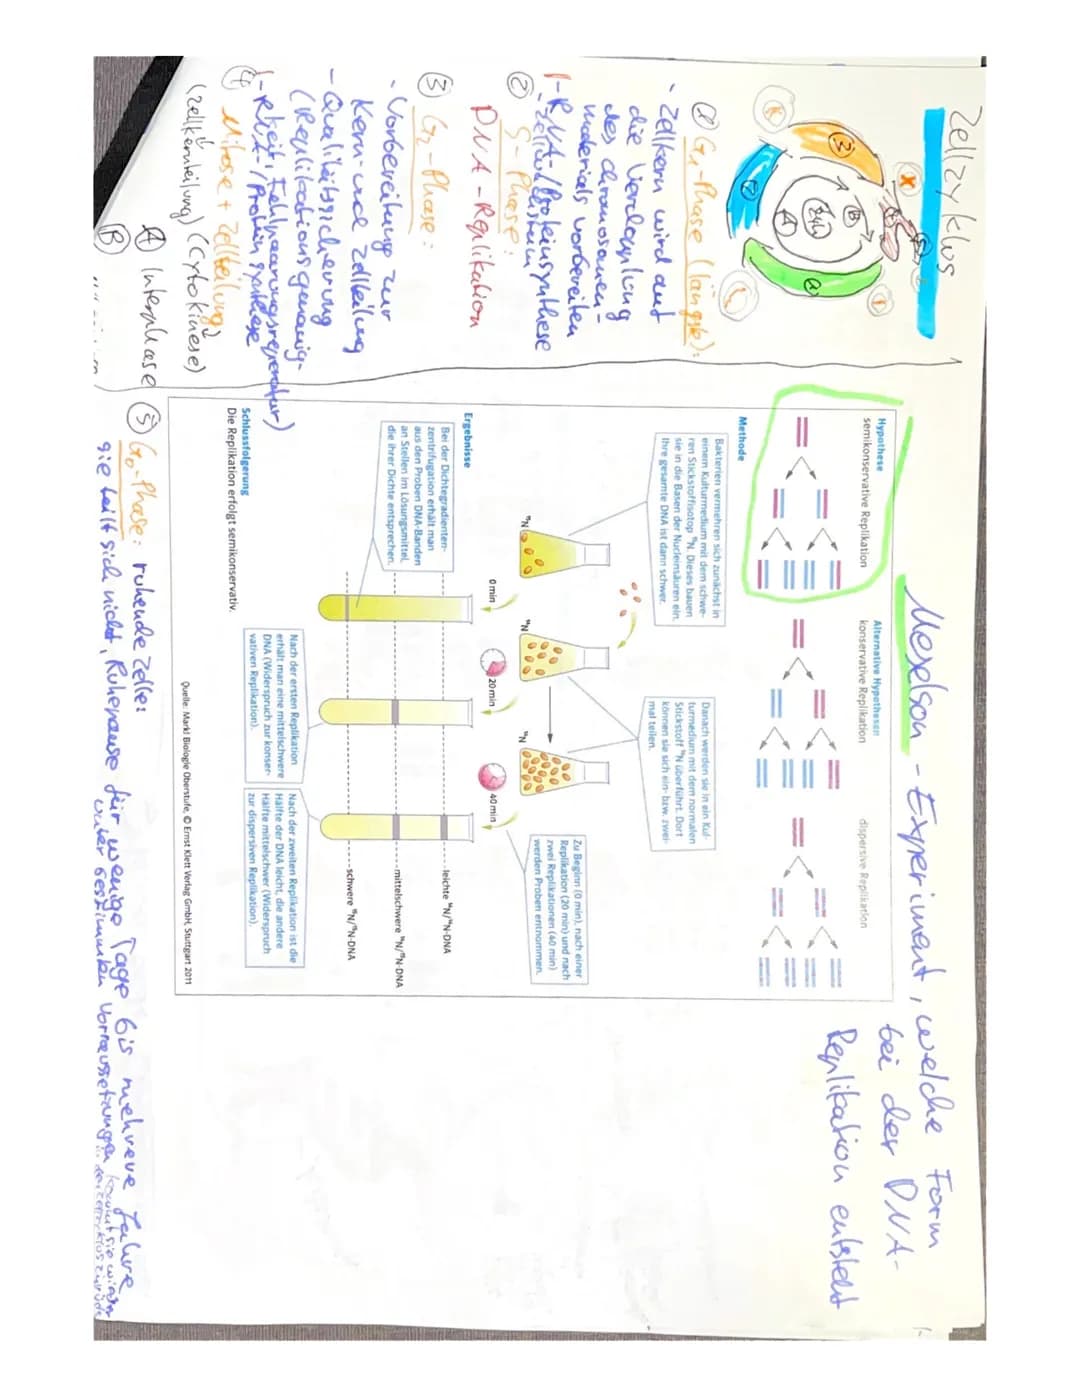 Zellzyklus
① G₁-Phase (längste):
- Zellkern wird auf
die Verdopplung
des chromosomen-
materials vorbereiten
- RNA-/Proteinsynthese
- Zellwachstum
② S-Phase:
DNA-Replikation
③ G₂-Phase:
- Vorbereitung zur
Kern und Zellteilung
- Qualitätssicherung
(Replikationsgenauig-
keit, Fehlpaarungsreperatur)
- RNA-/Protein synthese
④ Mitose + Zellteilung
(Zellkernteilung) (Cytokinese)
Ⓐ Interphase
Ⓑ
⑤ G₀-Phase: ruhende Zelle:
sie teilt sich nicht, Ruhepause für wenige Tage bis mehrere Jahre
unter bestimmten Vorraussetzungen kommt sie wieder
in den Zellzyklus zurück
Meselson - Experiment, welche Form
bei der DNA-
Replikation entsteht
Hypothese
semikonservative Replikation
Alternative Hypothesen
konservative Replikation
dispersive Replikation
Methode
Bakterien vermehren sich zunächst in
einem Kulturmedium mit dem schwe-
ren Stickstoffisotop ¹⁵N. Dieses bauen
sie in die Basen der Nucleinsäuren ein.
Ihre gesamte DNA ist dann schwer.
Danach werden sie in ein Kul-
turmedium mit dem normalen
Stickstoff ¹⁴N überführt. Dort
können sie sich ein- bzw. zwei-
mal teilen.
Zu Beginn (0 min), nach einer
Replikation (20 min) und nach
zwei Replikationen (40 min)
werden Proben entnommen.
¹⁵N
¹⁴N
¹⁴N
0 min
20 min
40 min
Ergebnisse
Bei der Dichtegradienten-
zentrifugation erhält man
aus den Proben DNA-Banden
an Stellen im Lösungsmittel,
die ihrer Dichte entsprechen.
leichte ¹⁴N/¹⁴N-DNA
mittelschwere ¹⁴N/¹⁵N-DNA
schwere ¹⁵N/¹⁵N-DNA
Nach der ersten Replikation
erhält man eine mittelschwere
DNA (Widerspruch zur konser-
vativen Replikation).
Nach der zweiten Replikation ist die
Hälfte der DNA leicht, die andere
Hälfte mittelschwer (Widerspruch
zur dispersiven Replikation).
Schlussfolgerung
Die Replikation erfolgt semikonservativ.
Quelle: Markl Biologie Oberstufe, © Ernst Klett Verlag GmbH, Stuttgart 2011